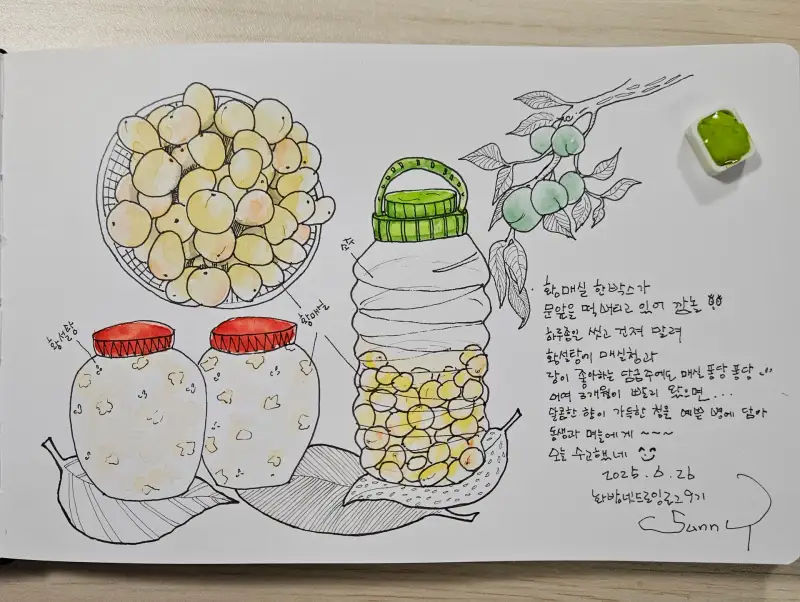 소주
황설탕
황매실
황매실 한박스가
문앞을 떡 버티고 있어 깜놀
하루종일 씻고 건져 말려
황설탕에 매실청과
랑이 좋아하는 담금주에도 매실 퐁당퐁당
어여 3개월이 빨리 왔으면...
달콤한 향이 가득한 청을 예쁜 병에 담아
동생과 며늘에게 ~~~
오늘 수고했네
2025.6.26
Sunny